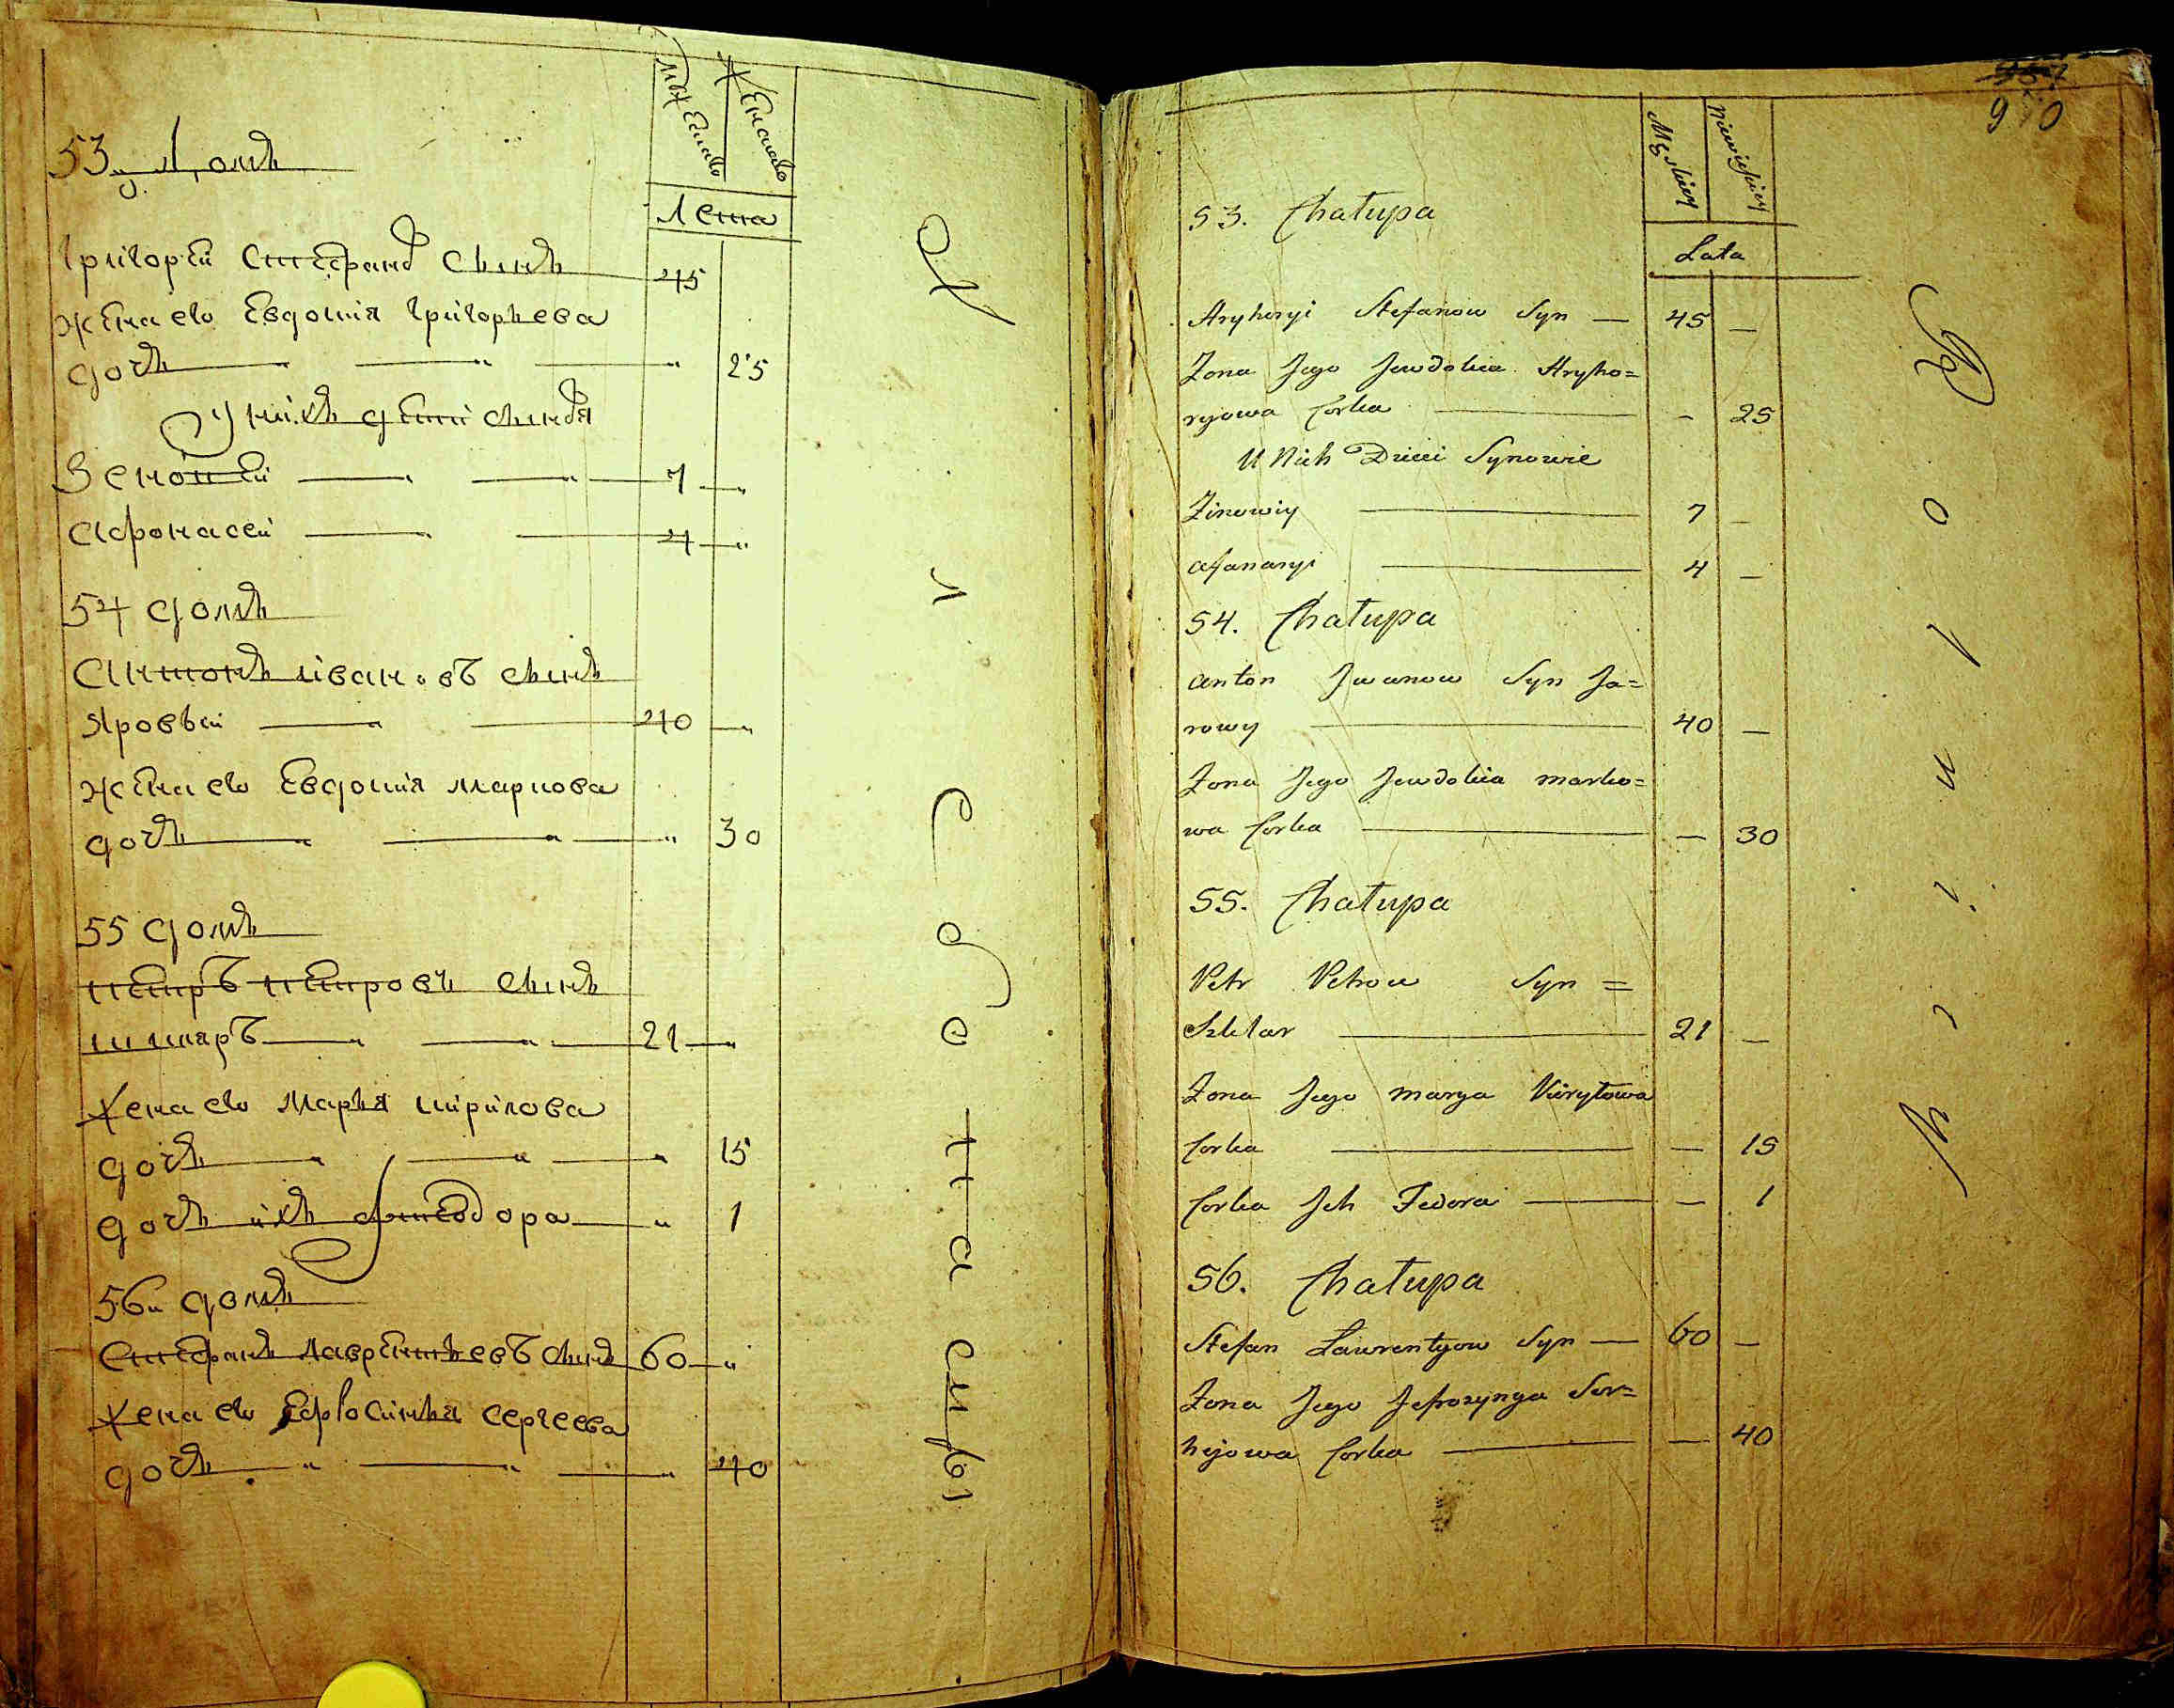 Мужеска
Женска
Лета
53„ Домъ
Григорей Стефановъ сынъ 45
Жена ево Евдокия Григорьева
дочь — „ — „ — „ 25
У нихъ дети сыновя
Зеновей — „ — „ — 7 — „
Афонасей — „ — 4 — „
54 домъ
Антонъ иванвъ сынъ
Яровый — „ — 40 — „
жена ево Евдокия маркова
дочь — „ — „ — „ 30
55 домъ
петръ петровъ сынъ
шкляръ — „ — „ — 21 — „
Жена ево Марья кирилова
дочь — „ — „ — „ 15
дочь ихъ феодора — „ 1
56„ домъ
Стефанъ лаврентьевъ сынъ 60 — „
Жена ево Ефросинья сергеева
дочь — „ — „ — „ 40
970
Męskiey
Niewieściey
Lata
53. Chałupa
Hryhoryi Stefanow Syn — 45 —
Zona Jego Jewdokia Hryho=
ryowa Corka — - 25
U Nich Dzieci Synowie
Zinowiy — 7 —
Afanasyi — 4 —
54. Chałupa
Anton Iwanow Syn Ja=
rowy — 40 —
Zona Jego Jewdokia marko=
wa Corka — — 30
55. Chałupa
Petr Petrow Syn =
Szklar — 21 —
Zona Jego marya Kiryłowa
Corka — — 15
Corka Ich Fedora — — 1
56. Chałupa
Stefan Lawrentyow Syn — 60 —
Zona Jego Jefrozynya Ser=
hejowa Corka — — 40